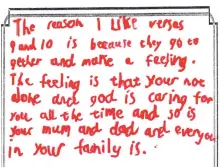 The reason I like verses
9 and 10 is because they go to
gether and make a feeling.
The feeling is that your not
alone and god is caring for
you all the time and so is
your mum and dad and everyone
in your family is.